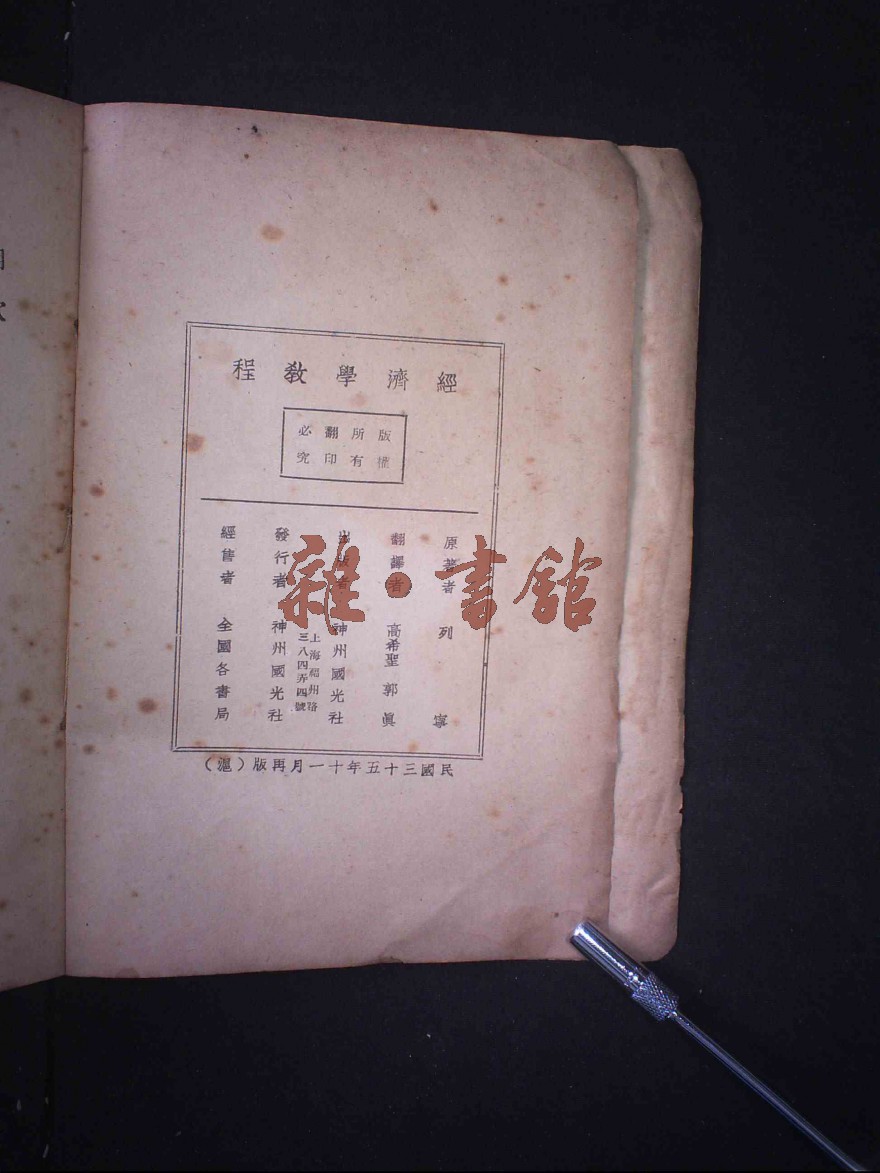 經濟學教程
版權
所有
翻印
必究
原著者 列寧
翻譯者 高希聖 郭眞
出版者 神州國光社
上海福州路
三八四弄四號
發行者 神州國光社
經售者 全國各書局
民國三十五年十一月再版（滬）
雜·書館